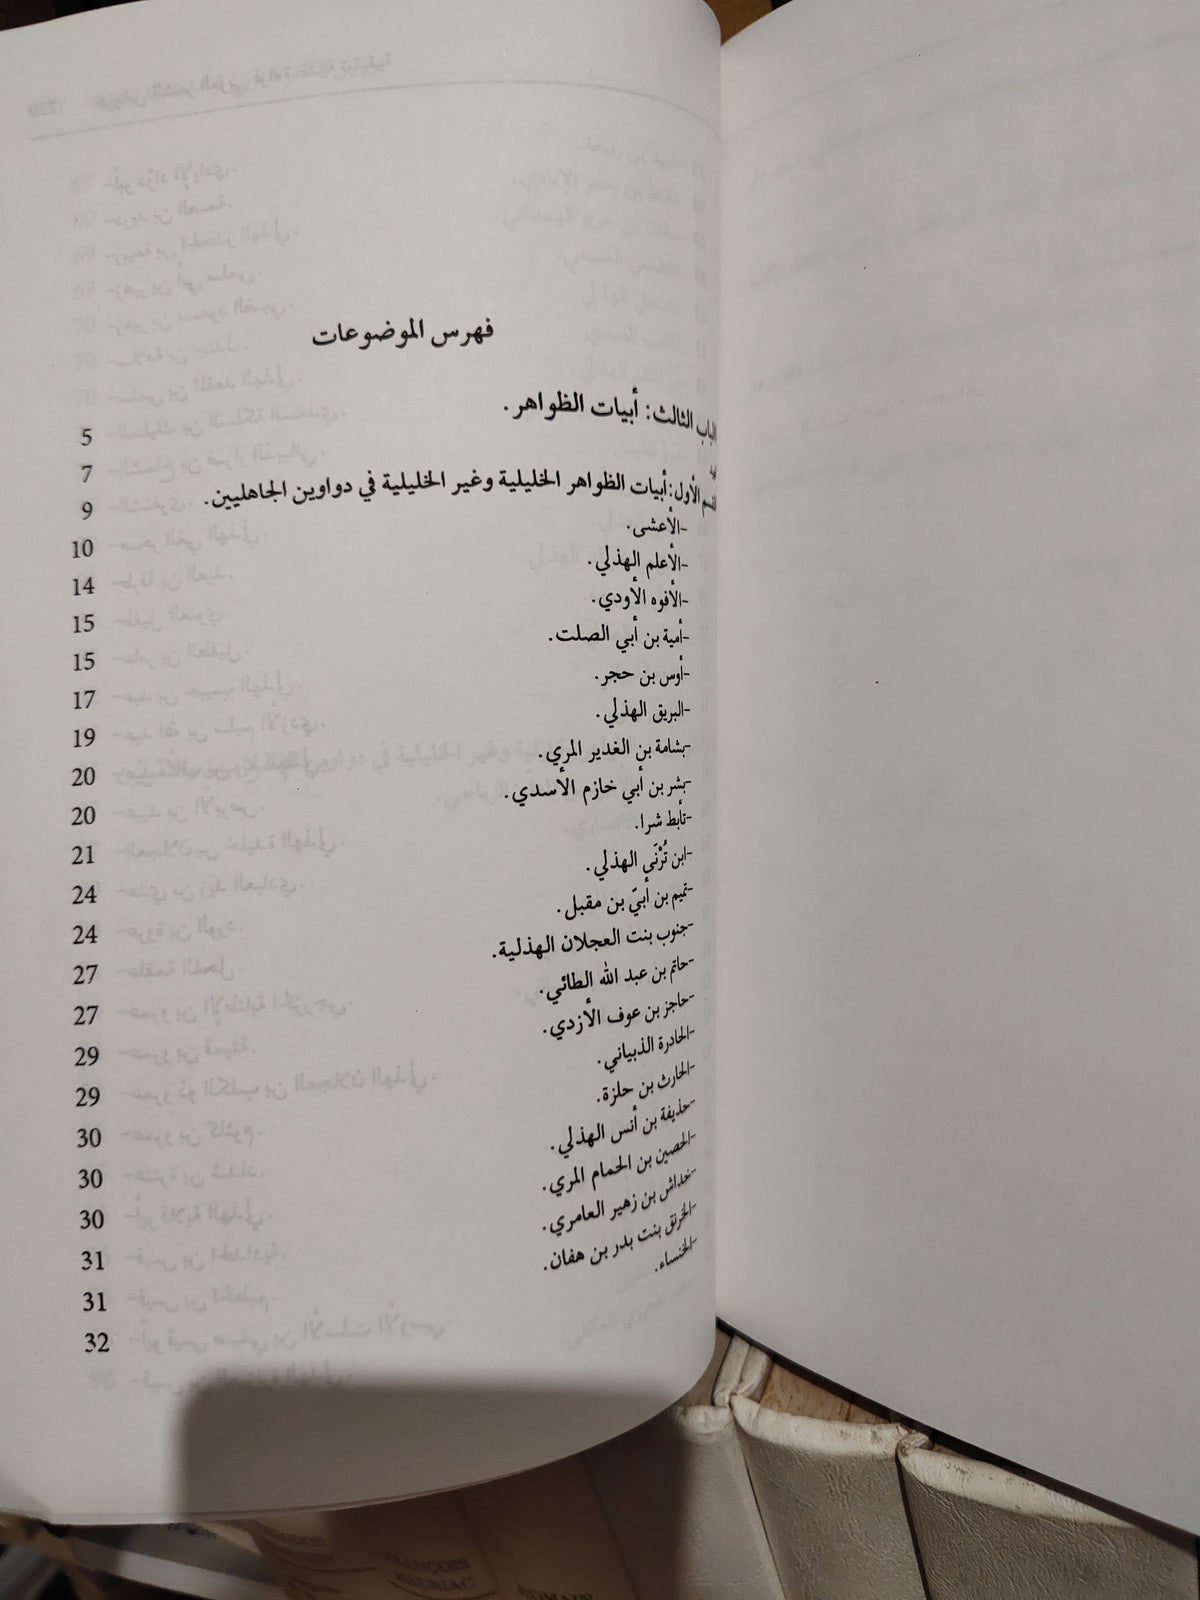 فهرس الموضوعات
الباب الثالث: أبيات الظواهر. 5
7
القسم الأول: أبيات الظواهر الخليلية وغير الخليلية في دواوين الجاهليين. 9
-الأعشى. 10
-الأعلم الهذلي. 14
-الأفوه الأودي. 15
-أمية بن أبي الصلت. 15
-أوس بن حجر. 17
-البريق الهذلي. 19
-بشامة بن الغدير المري. 20
-بشر بن أبي خازم الأسدي. 20
-تأبط شرا. 21
-ابن تُرْنَى الهذلي. 24
-تميم بن أبيّ بن مقبل. 24
-جنوب بنت العجلان الهذلية. 27
-حاتم بن عبد الله الطائي. 27
-حاجز بن عوف الأزدي. 29
-الحادرة الذبياني. 29
-الحارث بن حلزة. 30
-حذيفة بن أنس الهذلي. 30
-الحصين بن الحمام المري. 30
-خداش بن زهير العامري. 31
-الخرنق بنت بدر بن هفان. 31
-الخنساء. 32
FRANÇOIS
MAURIAC
ROMAIN